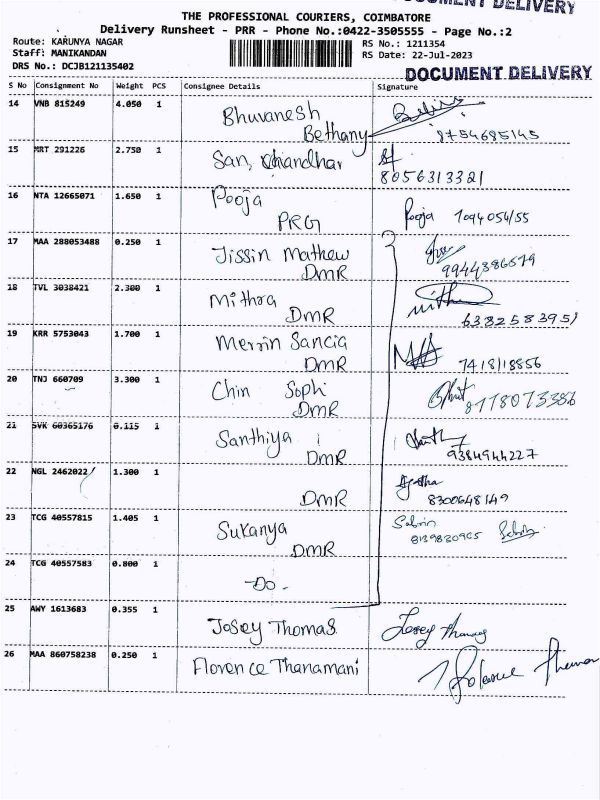 DOCUMENT DELIVERY
THE PROFESSIONAL COURIERS, COIMBATORE
Delivery Runsheet - PRR - Phone No.:0422-3505555 - Page No.:2
Route: KARUNYA NAGAR
RS No.: 1211354
Staff: MANIKANDAN
RS Date: 22-Jul-2023
DRS No.: DCJB121135402
DOCUMENT DELIVERY
S No Consignment No Weight PCS Consignee Details Signature
14 VNB 815249 4.050 1 Bhuvanesh
Bethany 8754685145
15 MRT 291226 2.750 1 San, Chandhar
8056313321
16 NTA 12665071 1.650 1 Pooja
PRG Pooja
17 MAA 288053488 0.250 1 Jissin Mathew
DMR 9944386579
18 TVL 3038421 2.300 1 Mithra
DMR 6382583951
19 KRR 5753043 1.700 1 Merrin Sancia
DMR 7418118856
20 TNJ 660709 3.300 1 Chin Sophi
DMR 8778073386
21 SVK 60365176 0.115 1 Santhiya
DMR 9384944227
22 NGL 2462022 1.300 1
DMR 8300648149
23 TCG 40557815 1.405 1 Sukanya Sabrin
DMR 8139820965
24 TCG 40557583 0.800 1
-Do-
25 AWY 1613683 0.355 1
Josey Thomas Josey Thomas
26 MAA 860758238 0.250 1
Florence Thanamani